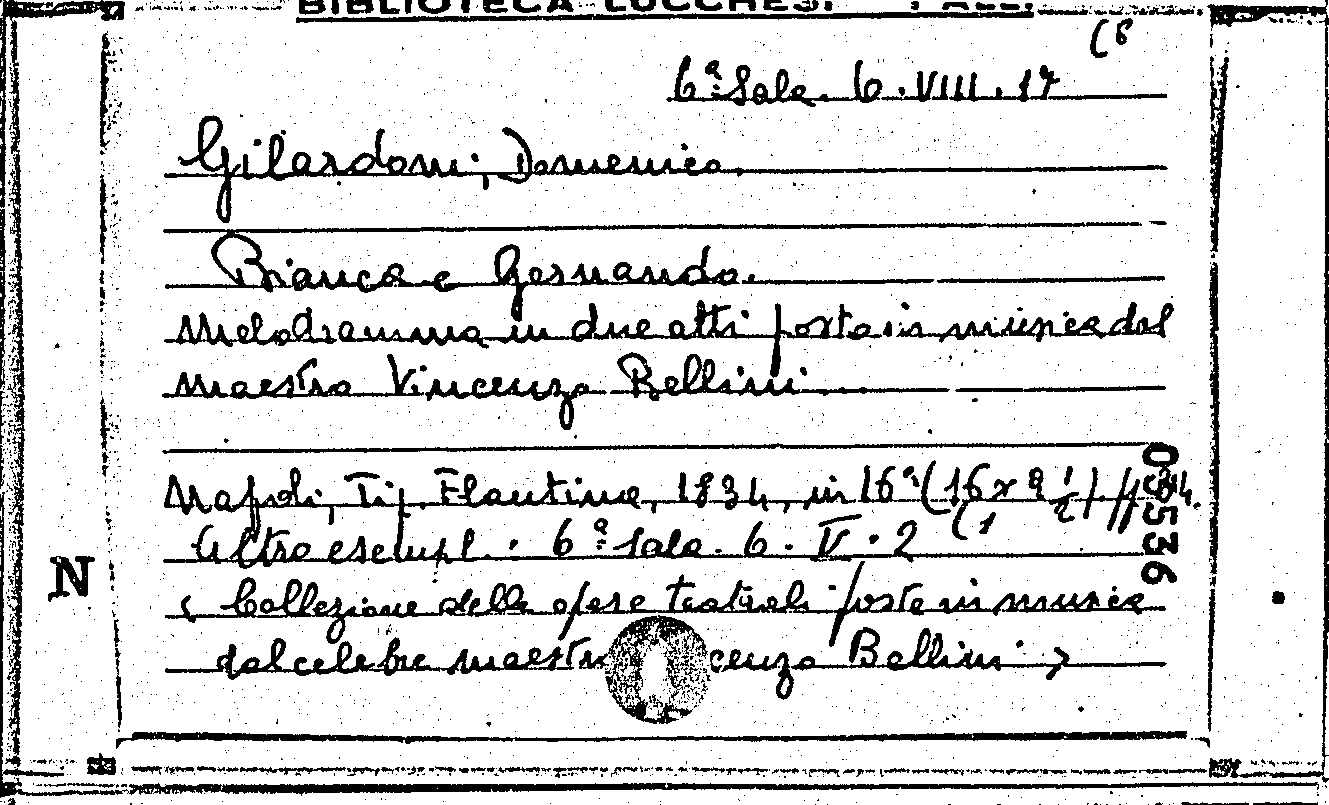 BIBLIOTECA LUCCHESI - PALL.
(8
6ª Sala. 6. VIII. 17
Gilardoni, Domenico.
Bianca e Gernando.
Melodramma in due atti posto in musica dal
maestro Vincenzo Bellini
Napoli, Tip. Flautina, 1834, in 16º (16 x 9 1/2)
Altro esempl. . 6ª Sala. 6. V. 2 (1
03536
N
< Collezione delle opere teatrali poste in musica
dal celebre maestro cenzo Bellini >